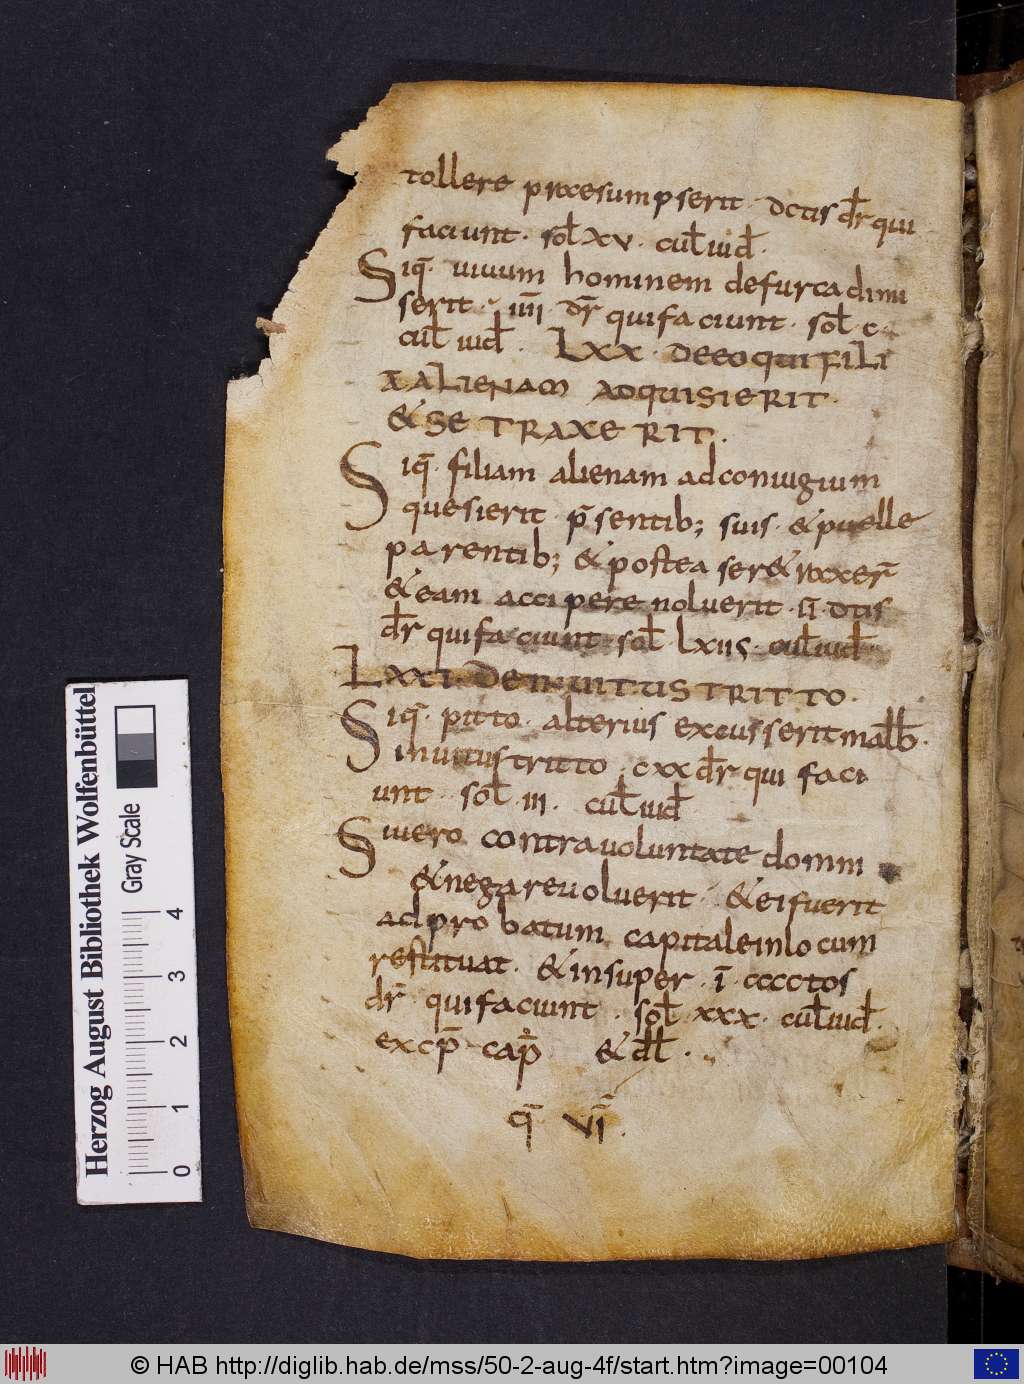 tollere praesumpserit · dctis dr̄ qui
faciunt · sol̄ xv · cul̄ iud̄ ·
Siq̄ · uiuum hominem defurca dimi
serit · iiii · dr̄ qui faciunt · sol̄ c ·
cul̄ iud̄ · Lxx · DEEO QUI FILI
ALIENAM ADQUISIERIT ·
& SE TRAXERIT ·
Siq̄ · filiam alienam adconiugium
quesierit p̄sentib; suis · & puelle
parentib; & postea ser&raxer̄
& eam accipere noluerit · īī · dtis
dr̄ qui faciunt sol̄ lxiis · cul̄ iud̄ ·
LXXI · DE INUITUS TRITTO ·
Siq̄ · pitto · alterius excusserit mall̄b ·
inuitustritto · cxx dr̄ qui faci
unt · sol̄ · iii · cul̄ iud̄
Siuero contrauoluntate domini
& negare uoluerit · & ei fuerit
adprobatum capitale inlocum
restituat · & insuper · ī · cccctos
dr̄ · qui faciunt · sol̄ · xxx · cul̄ iud̄ ·
excp̄ cap̄ & dl̄ ·
q̄ vī ·
Herzog August Bibliothek Wolfenbüttel
Gray Scale
0 1 2 3 4
© HAB http://diglib.hab.de/mss/50-2-aug-4f/start.htm?image=00104